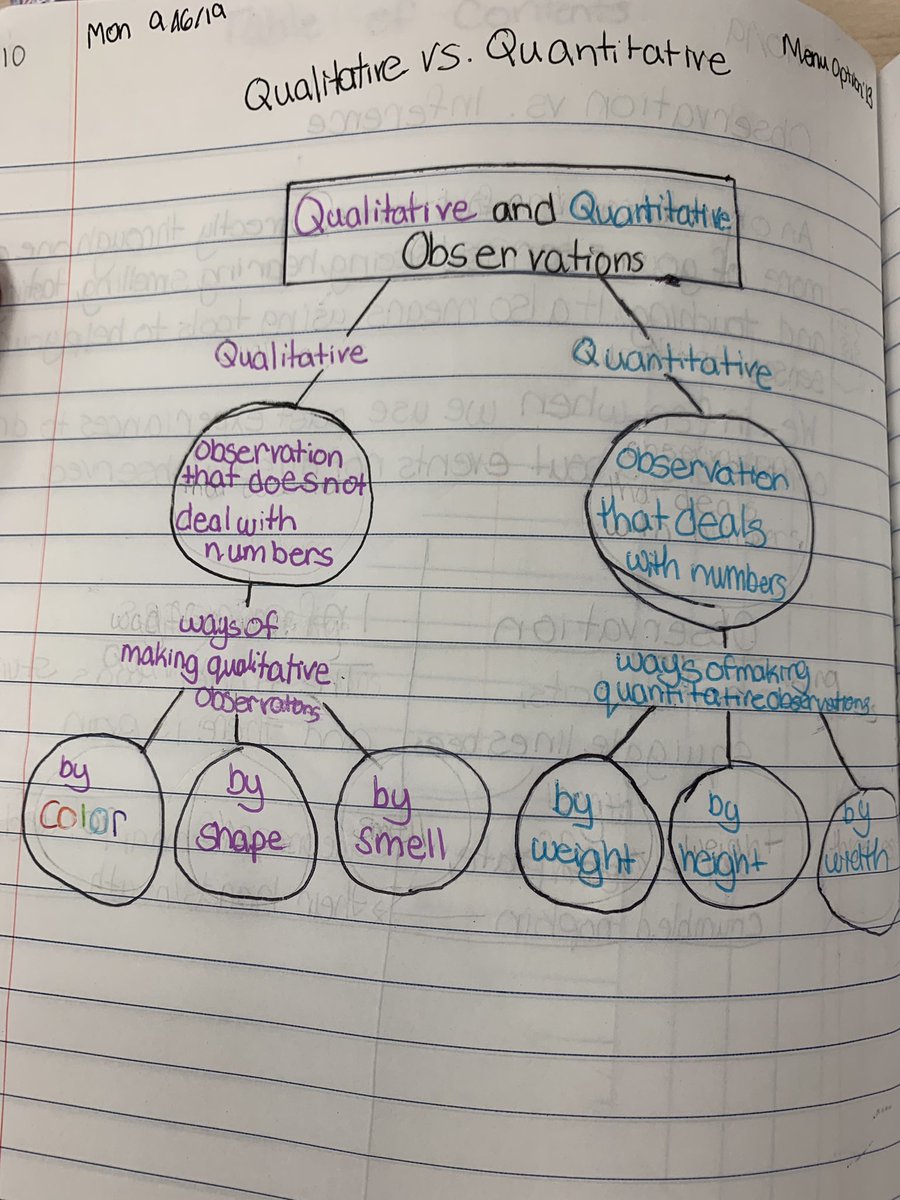 10
Mon 9/16/19
Qualitative vs. Quantitative
Menu Option 13
Qualitative and Quantitative
Observations
Qualitative
Quantitative
observation
that does not
deal with
numbers
observation
that deals
with numbers
ways of
making qualitative
observations
ways of making
quantitative observations
by
color
by
shape
by
smell
by
weight
by
height
by
width